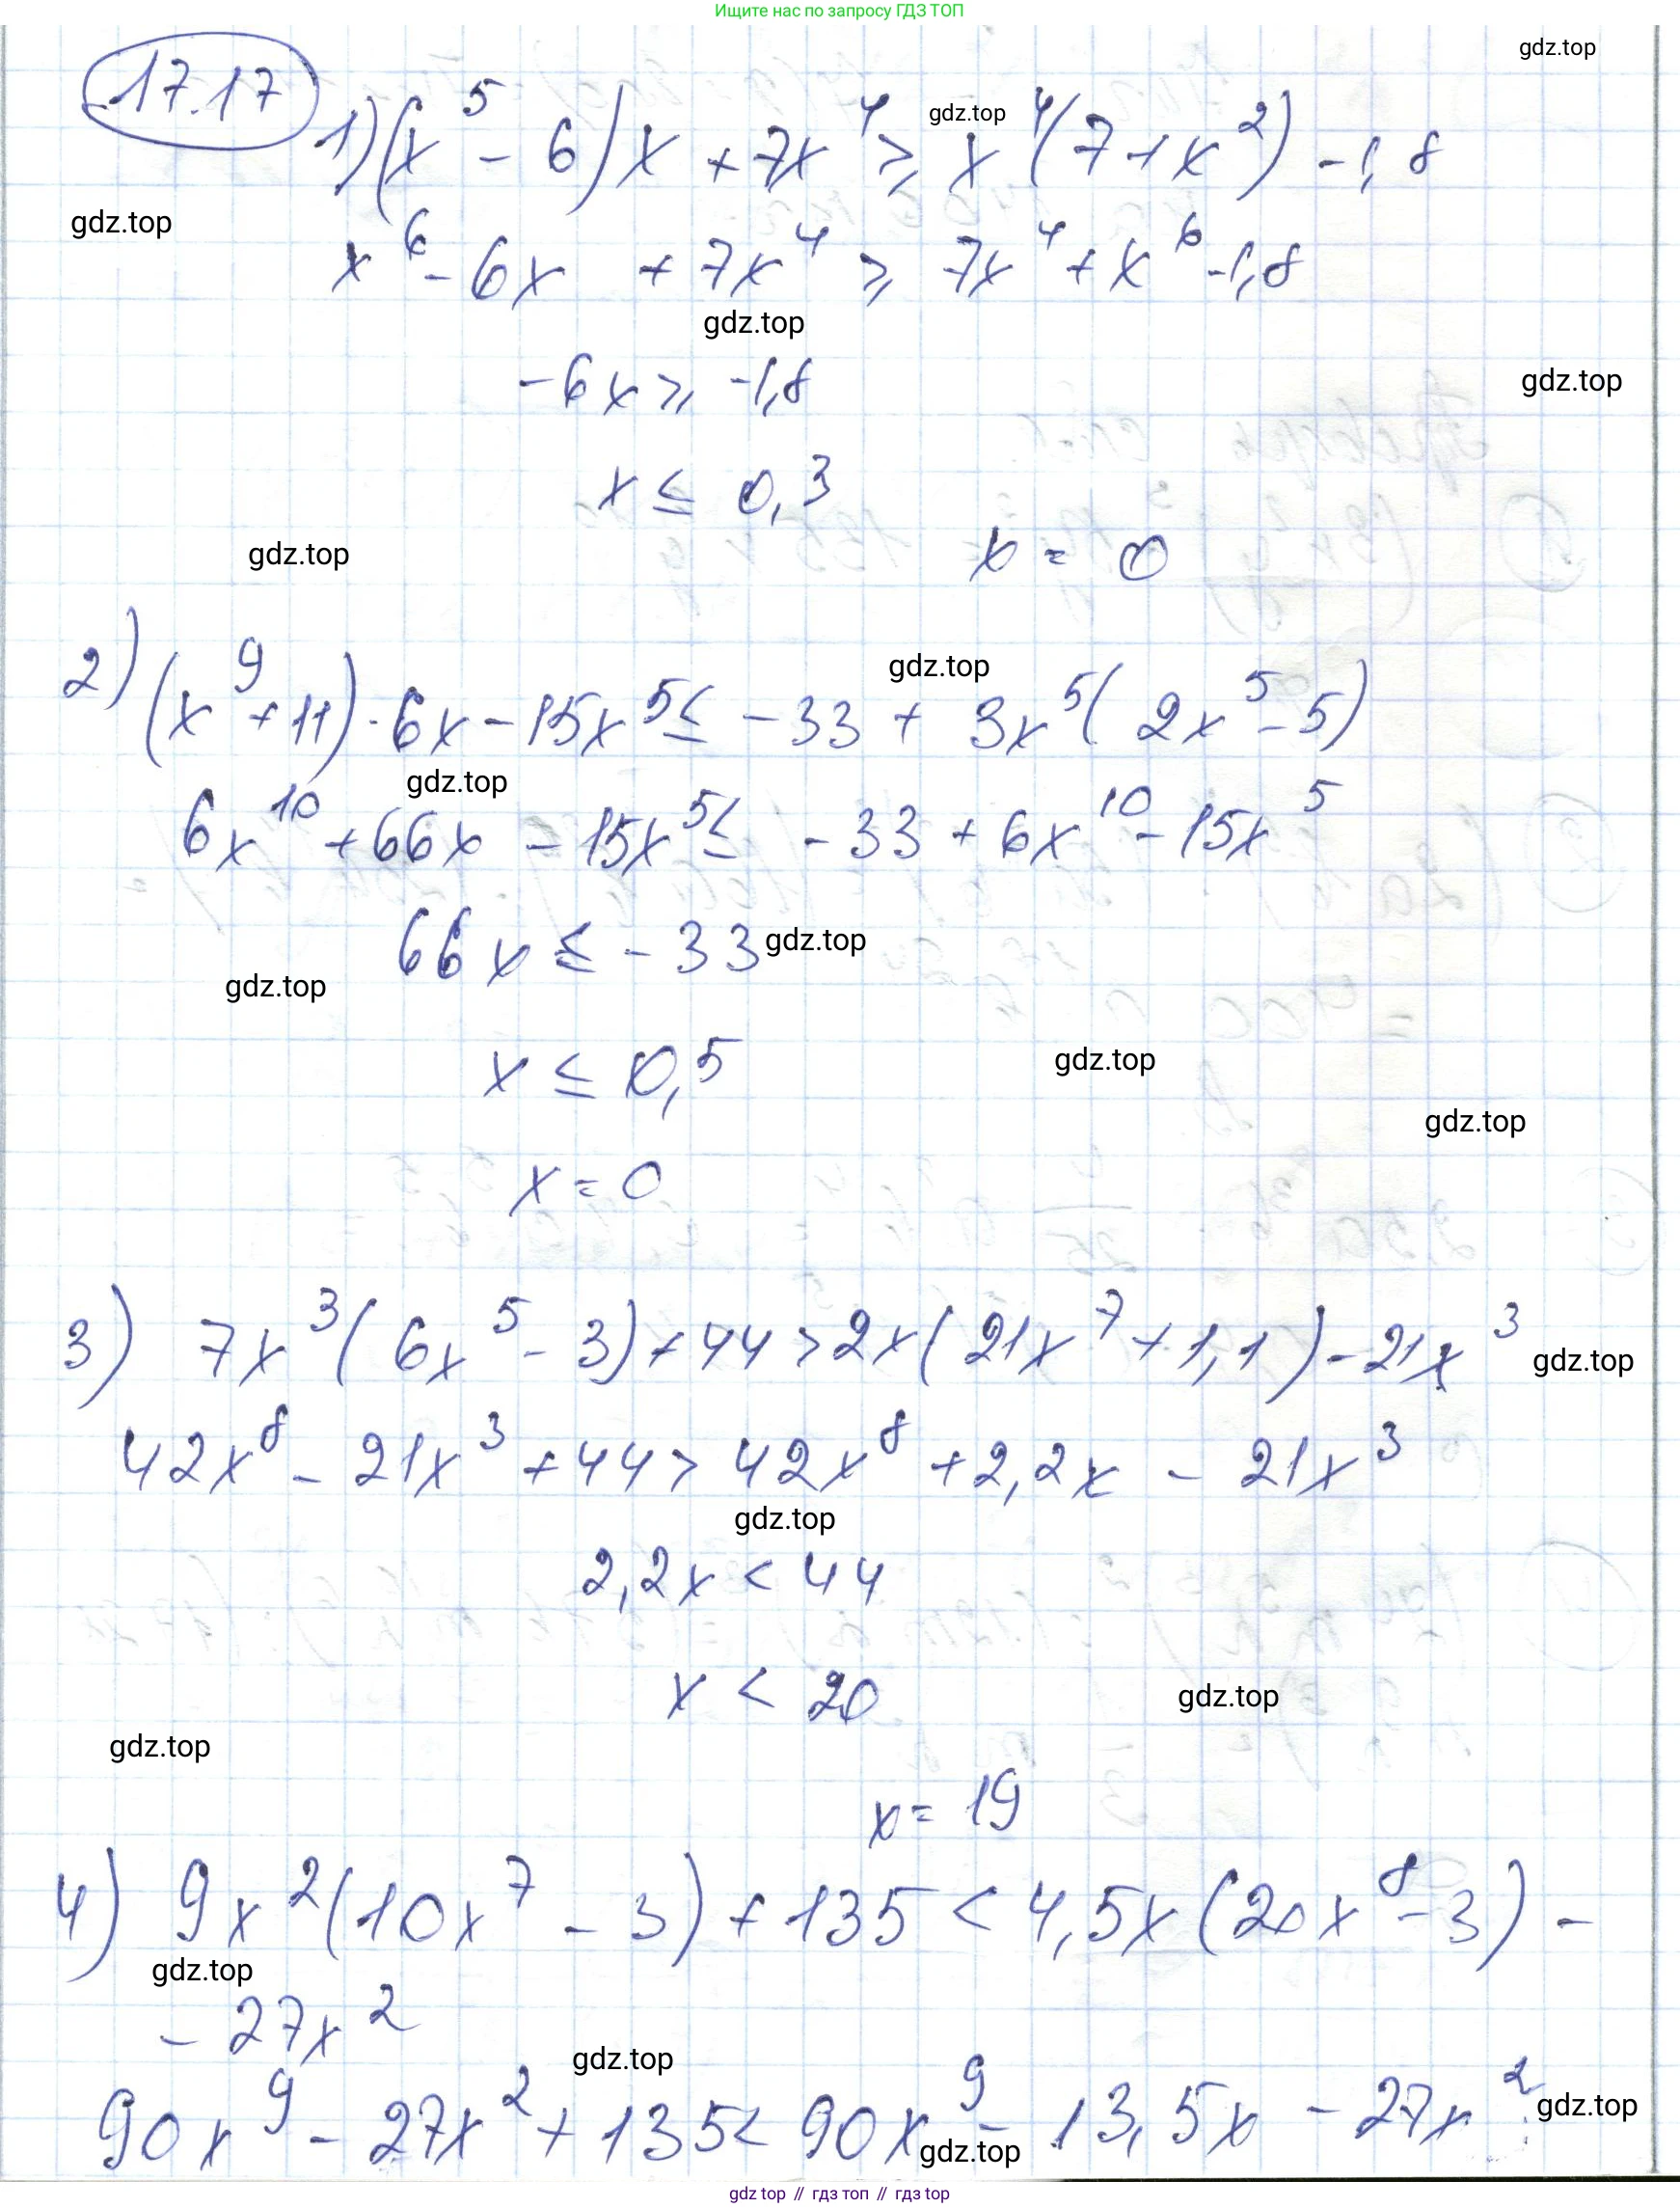 Ищите нас по запросу ГДЗ ТОП
gdz.top
17.17
1) (x⁵ - 6)x + 7x⁴ ⩾ x⁴(7 + x²) - 1,8
gdz.top
gdz.top
x⁶ - 6x + 7x⁴ ⩾ 7x⁴ + x⁶ - 1,8
gdz.top
-6x ⩾ -1,8
gdz.top
x ≤ 0,3
gdz.top
x = 0
2) (x⁹ + 11) · 6x - 15x⁵ ≤ -33 + 3x⁵(2x⁵ - 5)
gdz.top
gdz.top
6x¹⁰ + 66x - 15x⁵ ≤ -33 + 6x¹⁰ - 15x⁵
66x ≤ -33
gdz.top
gdz.top
x ≤ 0,5
gdz.top
gdz.top
x = 0
3) 7x³(6x⁵ - 3) + 44 > 2x(21x⁷ + 1,1) - 21x³
gdz.top
42x⁸ - 21x³ + 44 > 42x⁸ + 2,2x - 21x³
gdz.top
2,2x < 44
x < 20
gdz.top
gdz.top
x = 19
4) 9x²(10x⁷ - 3) + 135 < 4,5x(20x⁸ - 3) -
gdz.top
- 27x²
gdz.top
90x⁹ - 27x² + 135 < 90x⁹ - 13,5x - 27x²
gdz.top
gdz.top
gdz top // гдз топ // гдз top